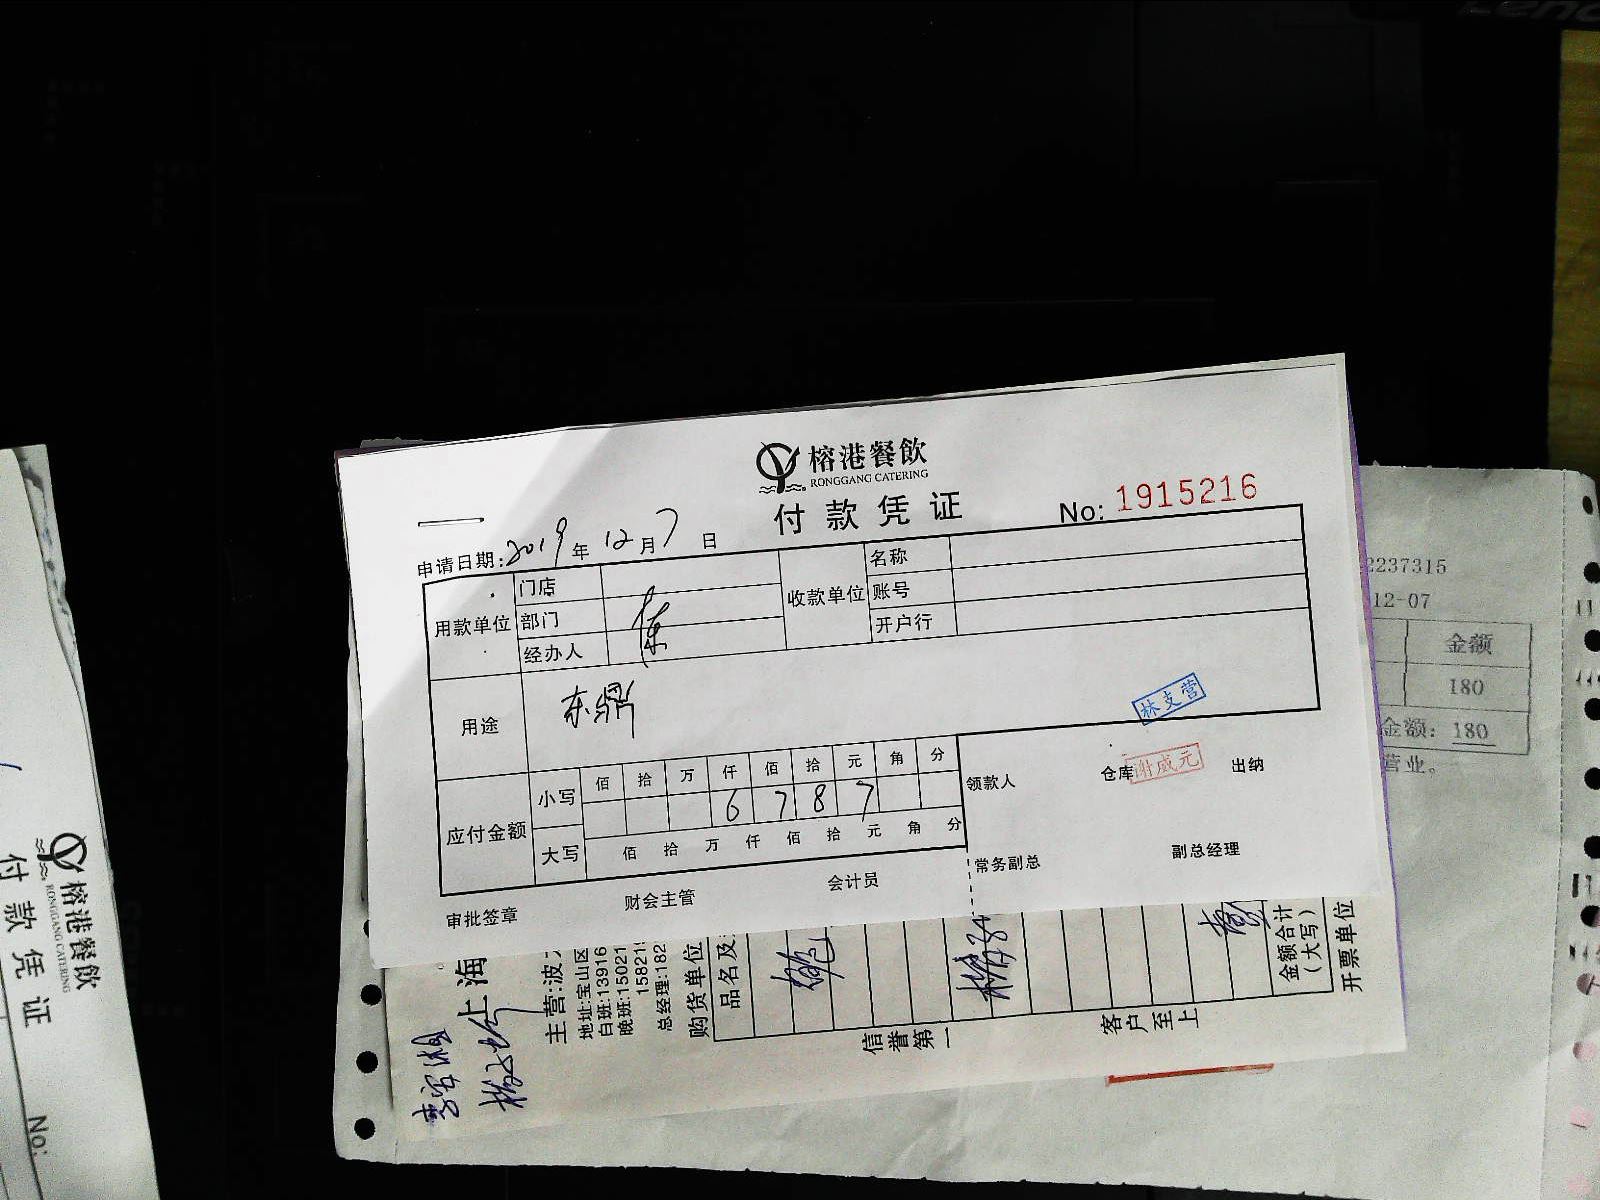 Lenovo
榕港餐飲
RONGGANG CATERING
付款凭证
No: 1915216
申请日期:2019年12月7日
用款单位
门店
部门
经办人
陈
收款单位
名称
账号
开户行
用途
东鼎
林支营
应付金额
小写
佰 拾 万 仟 佰 拾 元 角 分
6 7 8 7
大写
佰 拾 万 仟 佰 拾 元 角 分
领款人
仓库
谢成元
出纳
常务副总
副总经理
审批签章
财会主管
会计员
2237315
12-07
金额
180
金额: 180
营业。
上海
主营:波
地址:宝山区
白班:13916
晚班:15021
15821
总经理:182
购货单位
品名及
金额合计
(大写)
开票单位
信誉第一
客户至上
榕港餐飲
RONGGANG CATERING
付款凭证
No: